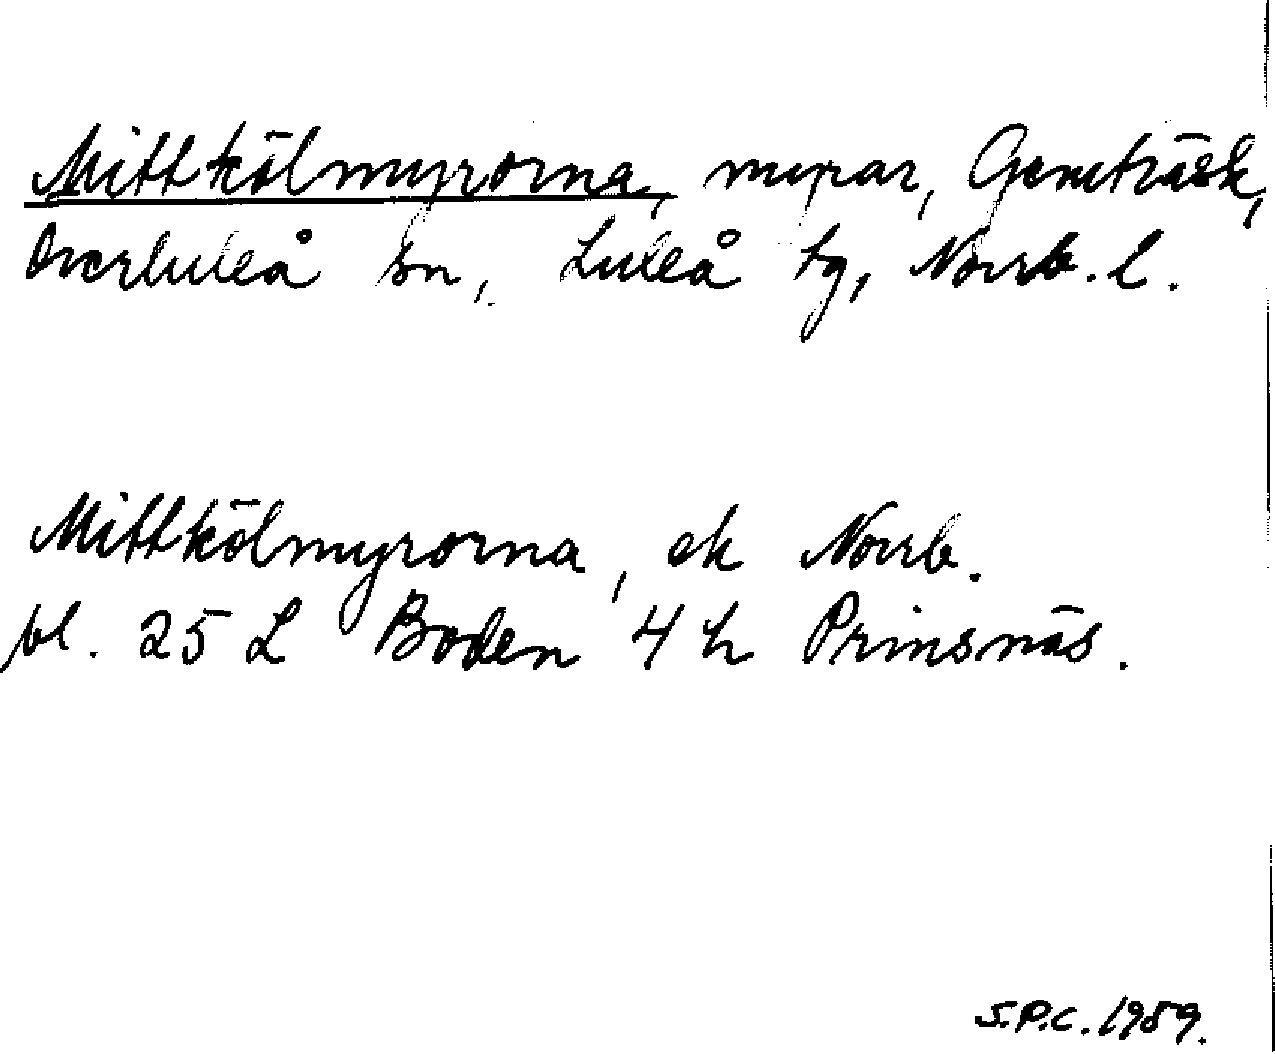 Mittkölmyrorna, myrar, Gemträsk,
Överluleå sn, Luleå tg, Norrb. l.
Mittkölmyrorna, ek Norrb.
bl. 25 L Boden 4 h Prinsnäs.
S.P.C. 1989.